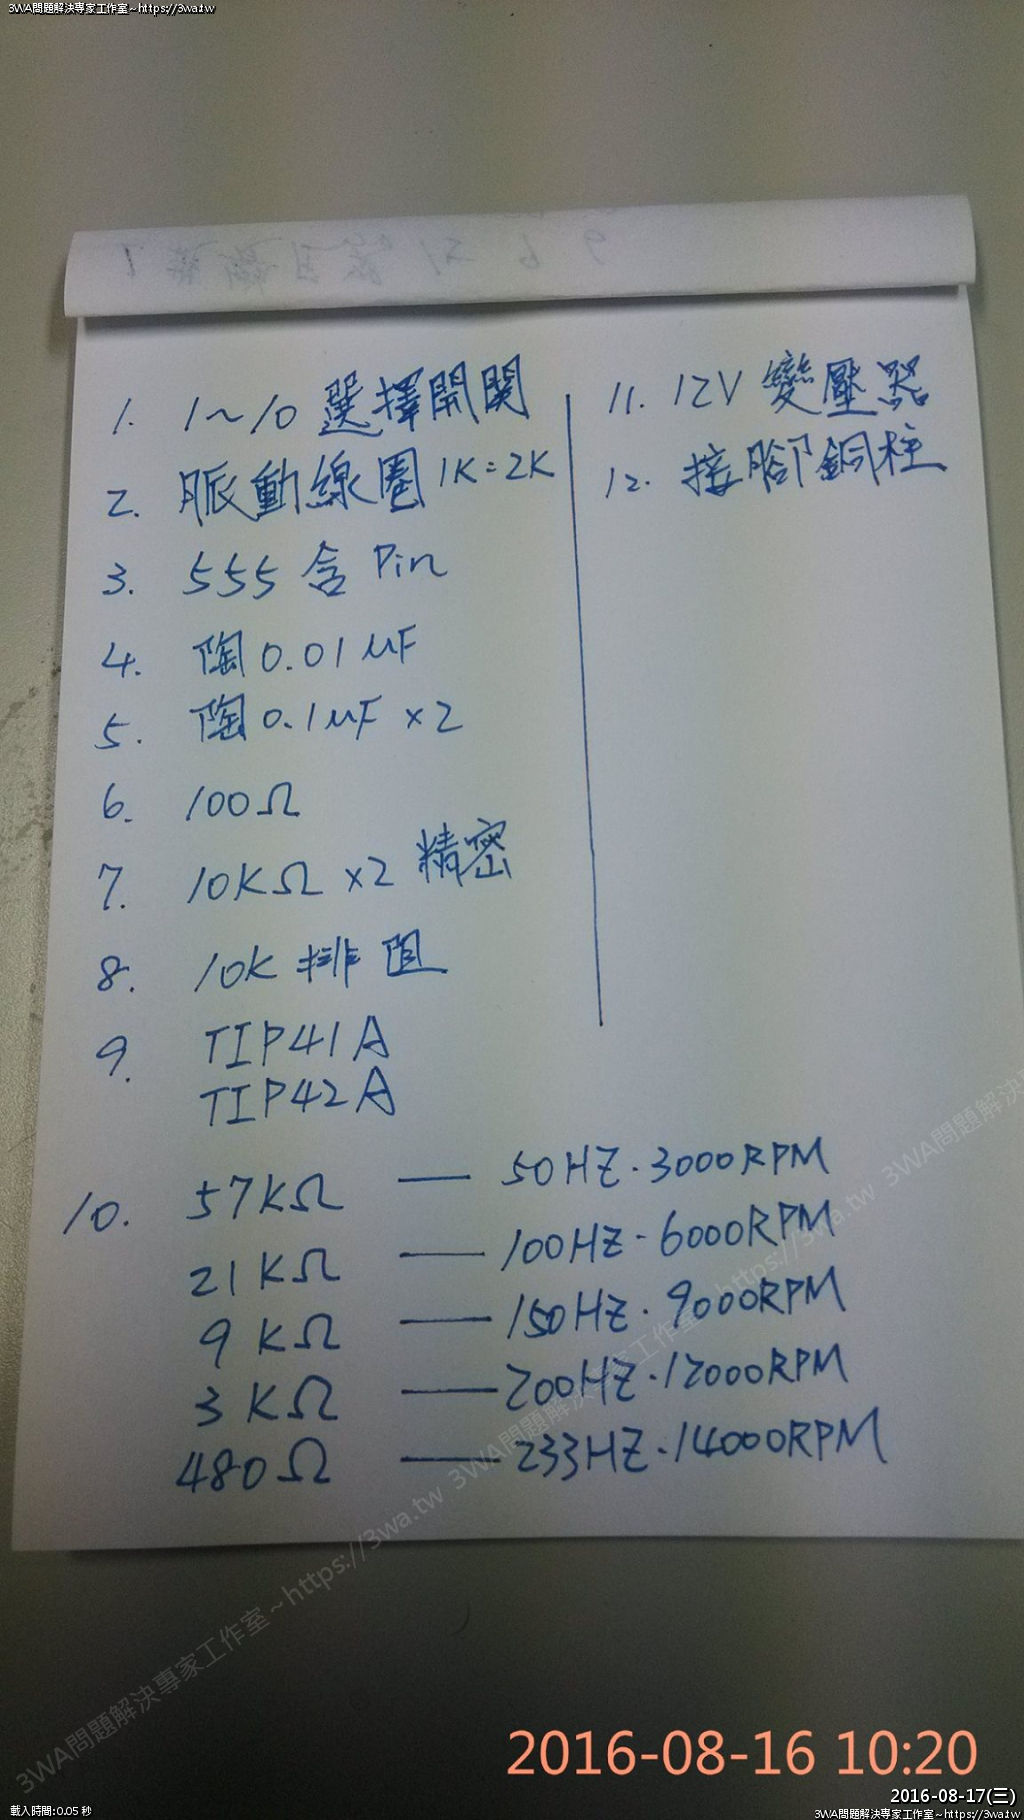 3WA問題解決專家工作室~https://3wa.tw
1. 1~10 選擇開関
2. 脈動線圈 1K=2K
3. 555 含 Pin
4. 陶 0.01 μF
5. 陶 0.1 μF ×2
6. 100Ω
7. 10KΩ ×2 精密
8. 10K 排阻
9. TIP41A
TIP42A
10. 57KΩ — 50HZ.3000RPM
21KΩ — 100HZ-6000RPM
9KΩ — 150HZ.9000RPM
3KΩ — 200HZ.12000RPM
480Ω — 233HZ.14000RPM
11. 12V 變壓器
12. 接腳銅柱
3WA問題解決專家工作室~https://3wa.tw 3WA問題解決專家工作室~https://3wa.tw 3WA問題解決
2016-08-16 10:20
2016-08-17(三)
載入時間:0.05 秒
3WA問題解決專家工作室~https://3wa.tw